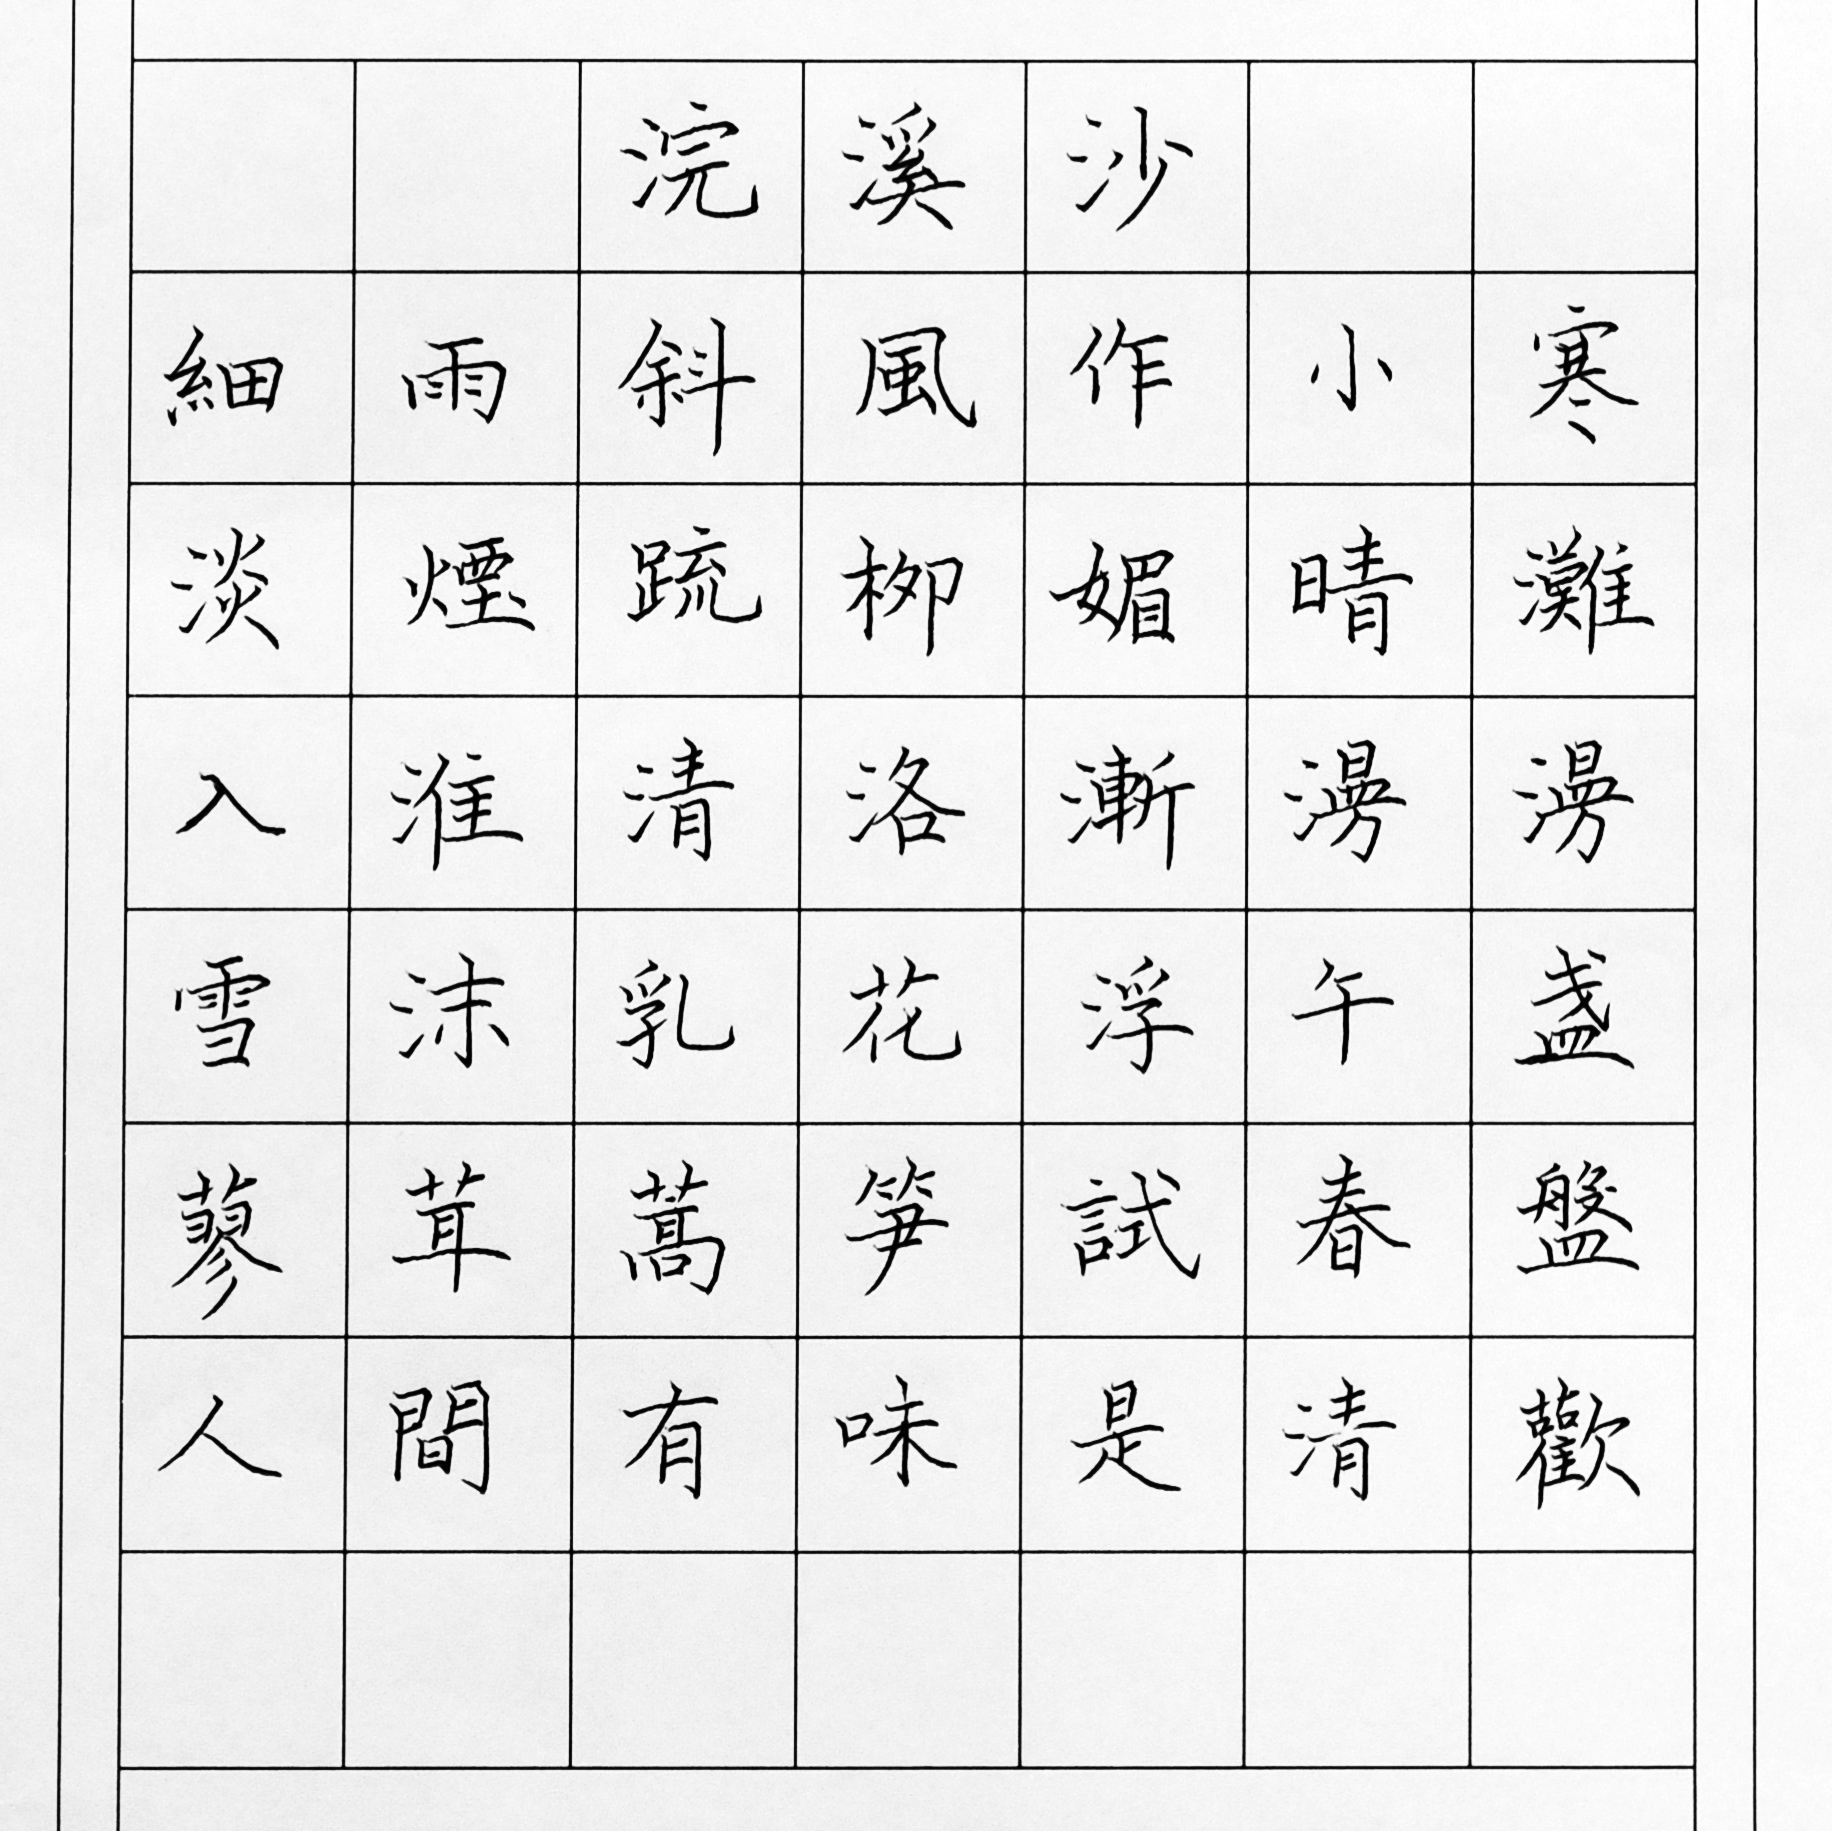 浣溪沙
細雨斜風作小寒
淡煙疏柳媚晴灘
入淮清洛漸漫漫
雪沫乳花浮午盞
蓼茸蒿筍試春盤
人間有味是清歡